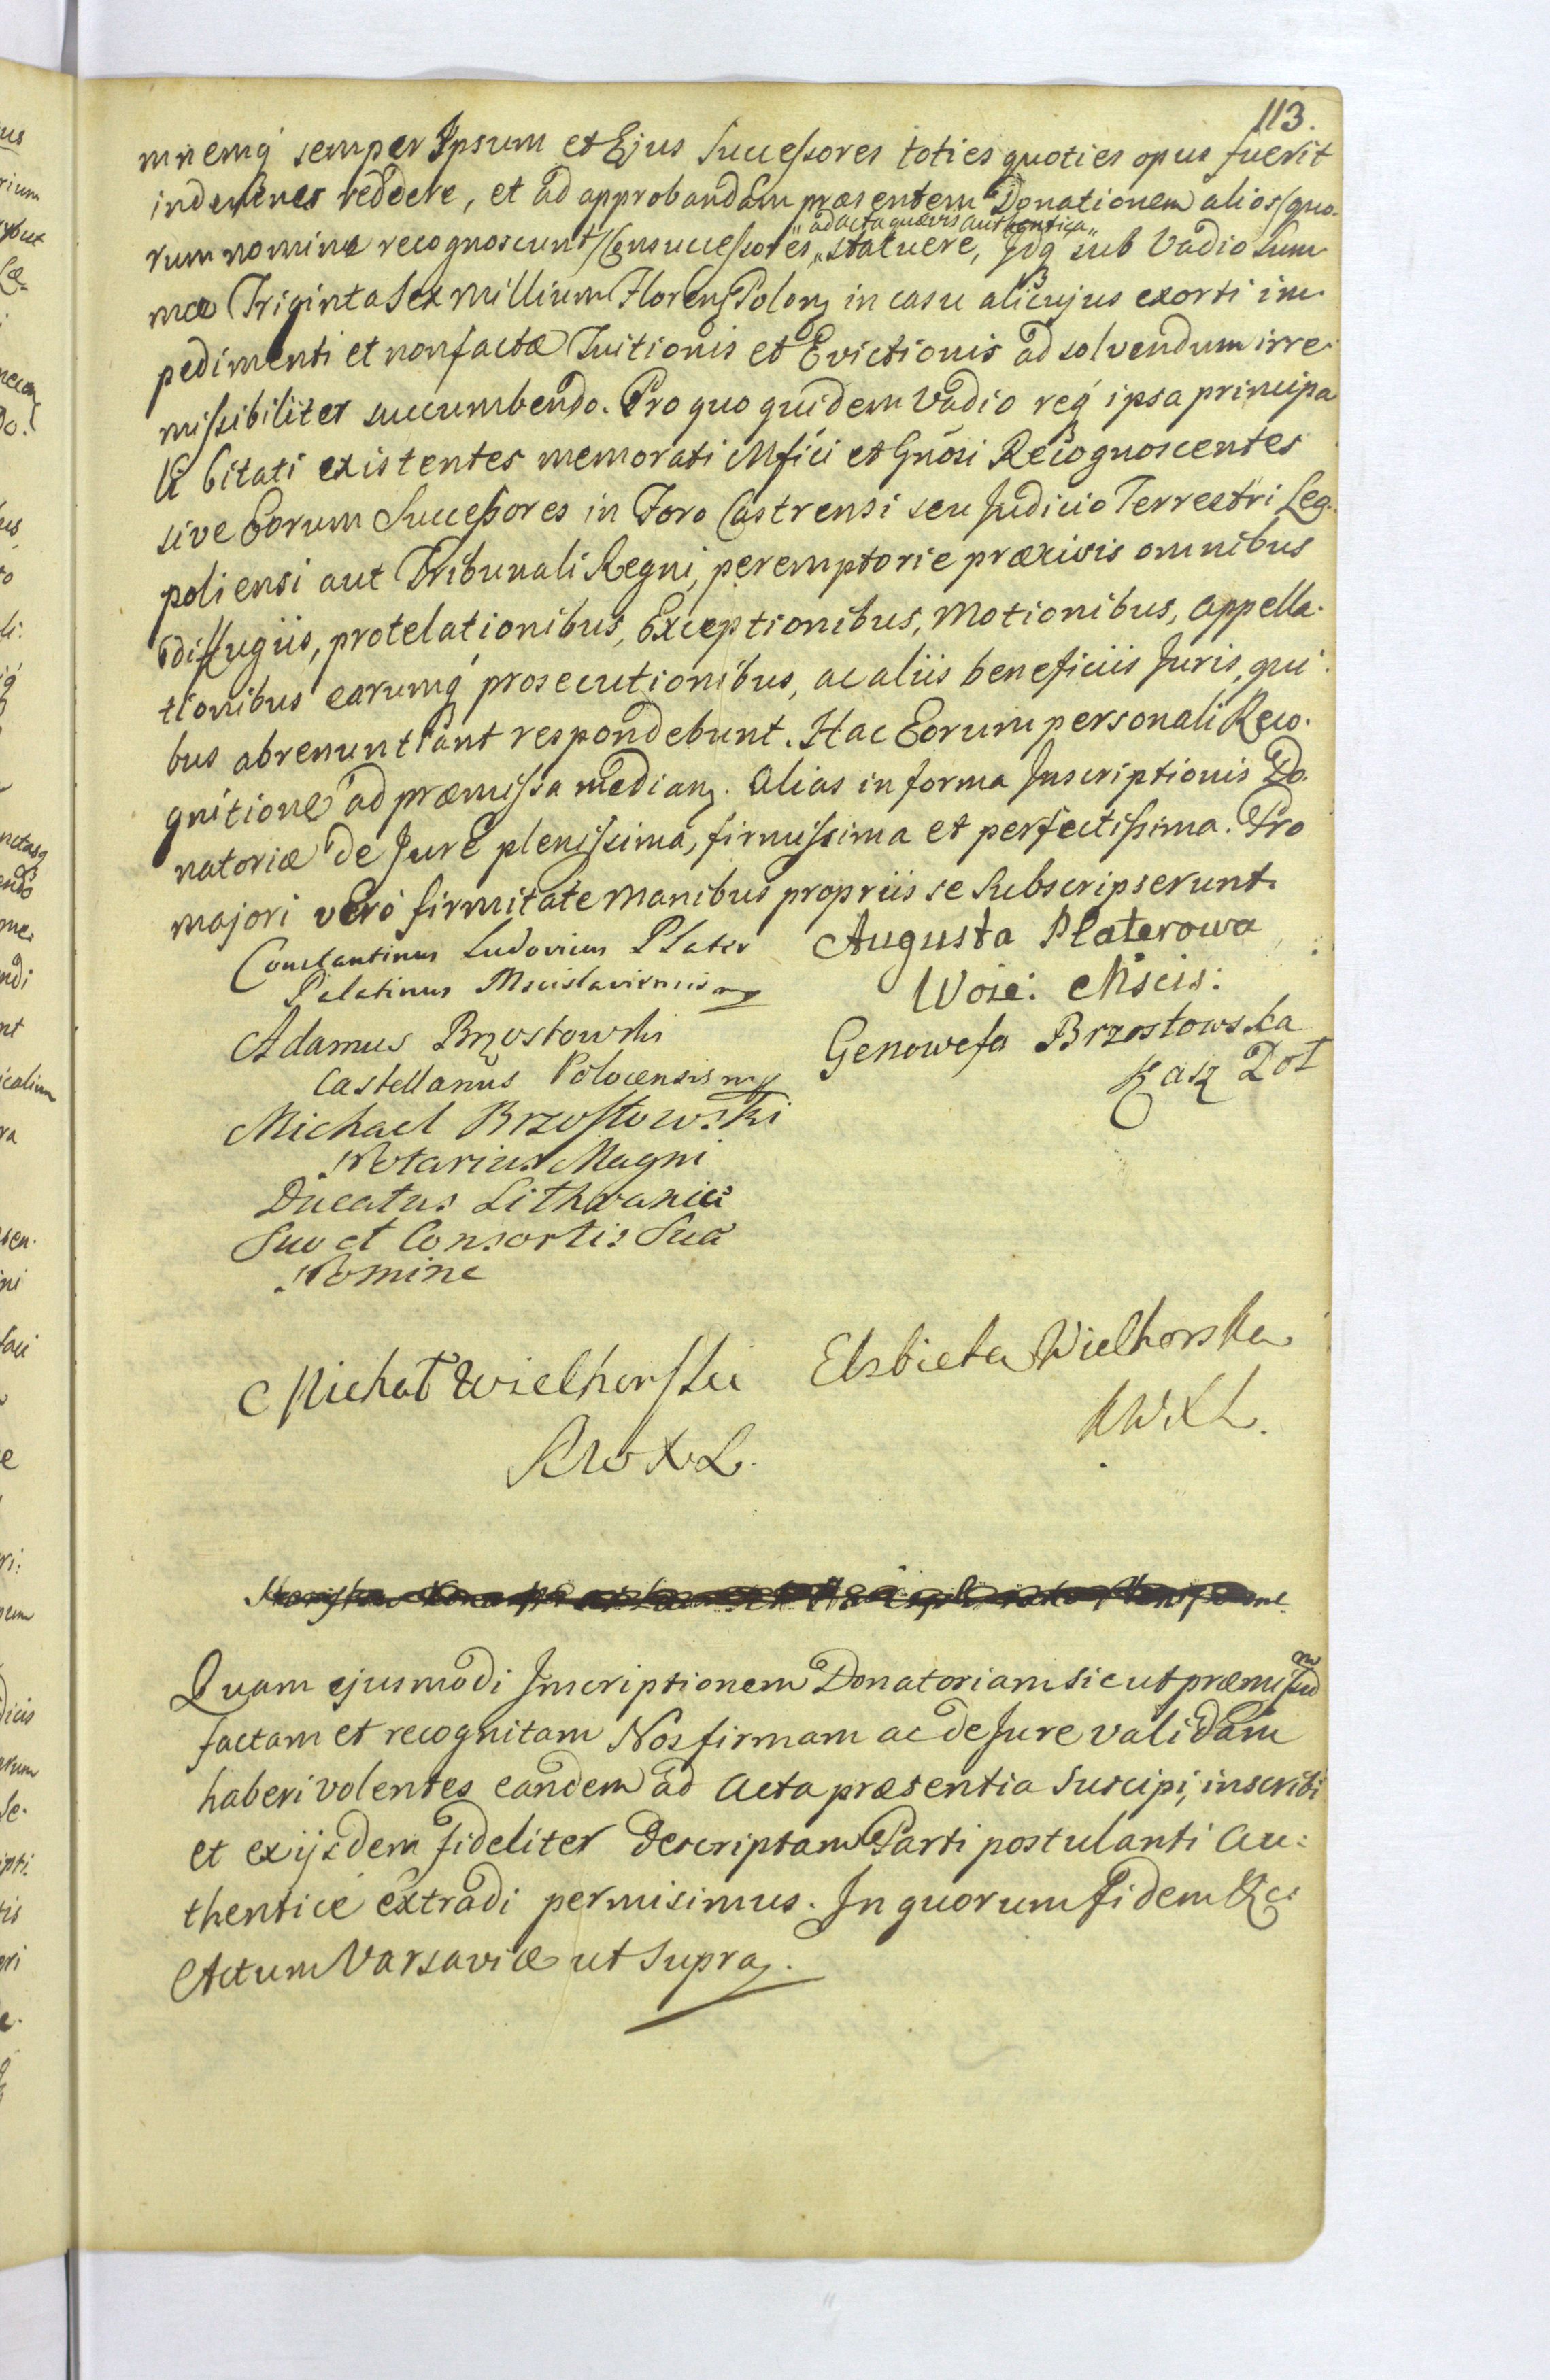 113.
mnemq́ semper Ipsum et Ejus Successores toties quoties opus fuerit
indemnes reddere, et ad approbandam præsentem Donationem alios /quo-
„ad acta quævis authentica„
rum nomine recognoscunt/ Consuccessores „ statuere, Idq sub Vadio Sum
mæ Triginta Sex Millium Floren Polon in casu alicujus exorti im-
pedimenti et non factæ Tuitionis et Evictionis ad solvendum irre-
missibiliter succumbendo. Pro quo quidem Vadio req́ ipsa principa
li Citati existentes memorati Mfici et Gnosi Recognoscentes
sive Eorum Successores in Foro Castrensi seu Judicio Terrestri Leo-
poliensi aut Tribunali Regni, peremptorie præcisis omnibus
diffugiis, protelationibus, Exceptionibus, Motionibus, Appella-
tionibus earumq́ prosecutionibus, ac aliis beneficiis Juris, qui-
bus abrenuntiant respondebunt. Hac Eorum personali Reco-
gnitione ad præmissa median. Alias in forma Inscriptionis Do-
natoriæ de Jure plenissima, firmissima et perfectissima. Pro
majori vero firmitate Manibus propriis se Subscripserunt.
Constantinus Ludovicus Plater Augusta Platerowa
Palatinus Mscislaviensis mp Woie: Mścis:
Adamus Brzostowski Genowefa Brzostowska
Castellanus Polocensis mp Kasz Poł
Michael Brzostowski
Notarius Magni
Ducatus Lithvaniæ
Suo et Consortis Suæ
Nomine
Michał Wielhorski Elzbieta Wielhorska
K W X L. K W X L.
Quam ejusmodi Inscriptionem Donatoriam sic ut præmissũ
factam et recognitam Nos firmam ac de Jure validam
haberi volentes eandem ad Acta præsentia Suscipi, inscribi
et ex ijsdem fideliter descriptam Parti postulanti Au-
thentice extradi permisimus. In quorum Fidem &c:
Actum Varsaviæ ut Supra.